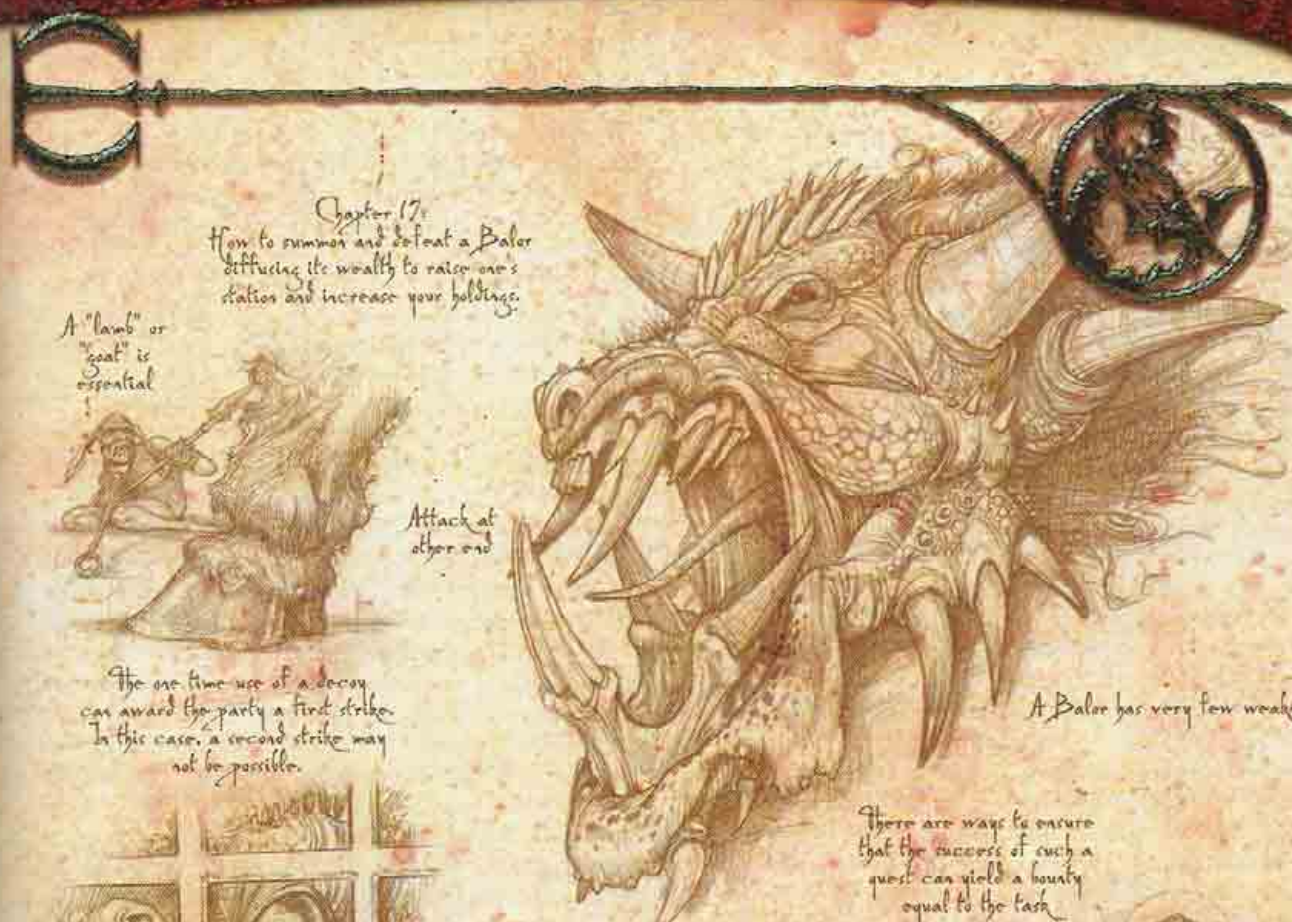 Chapter 17:
How to summon and defeat a Balor
diffusing its wealth to raise one's
station and increase your holdings.
A "lamb" or
"goat" is
essential
Attack at
other end
The one time use of a decoy
can award the party a first strike.
In this case, a second strike may
not be possible.
A Balor has very few weak
There are ways to ensure
that the success of such a
quest can yield a bounty
equal to the task